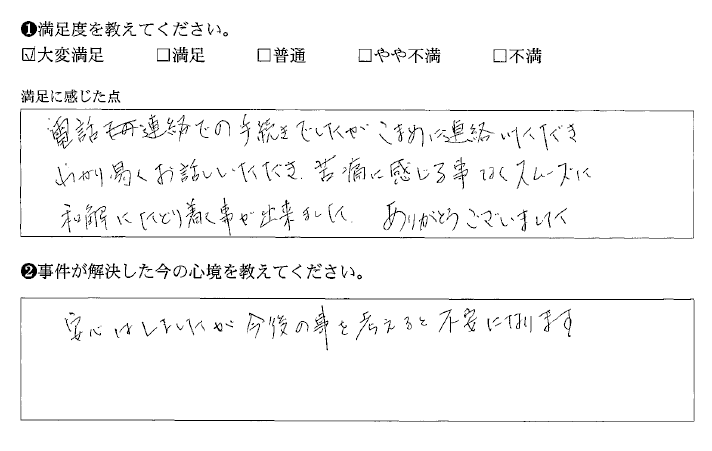 ❶満足度を教えてください。
☑大変満足 □満足 □普通 □やや不満 □不満
満足に感じた点
電話 連絡での手続きでしたがこまめに連絡いただき
わかり易くお話しいただき、苦痛に感じる事なくスムーズに
和解にたどり着く事が出来ました。 ありがとうございました
❷事件が解決した今の心境を教えてください。
安心はしましたが今後の事を考えると不安になります